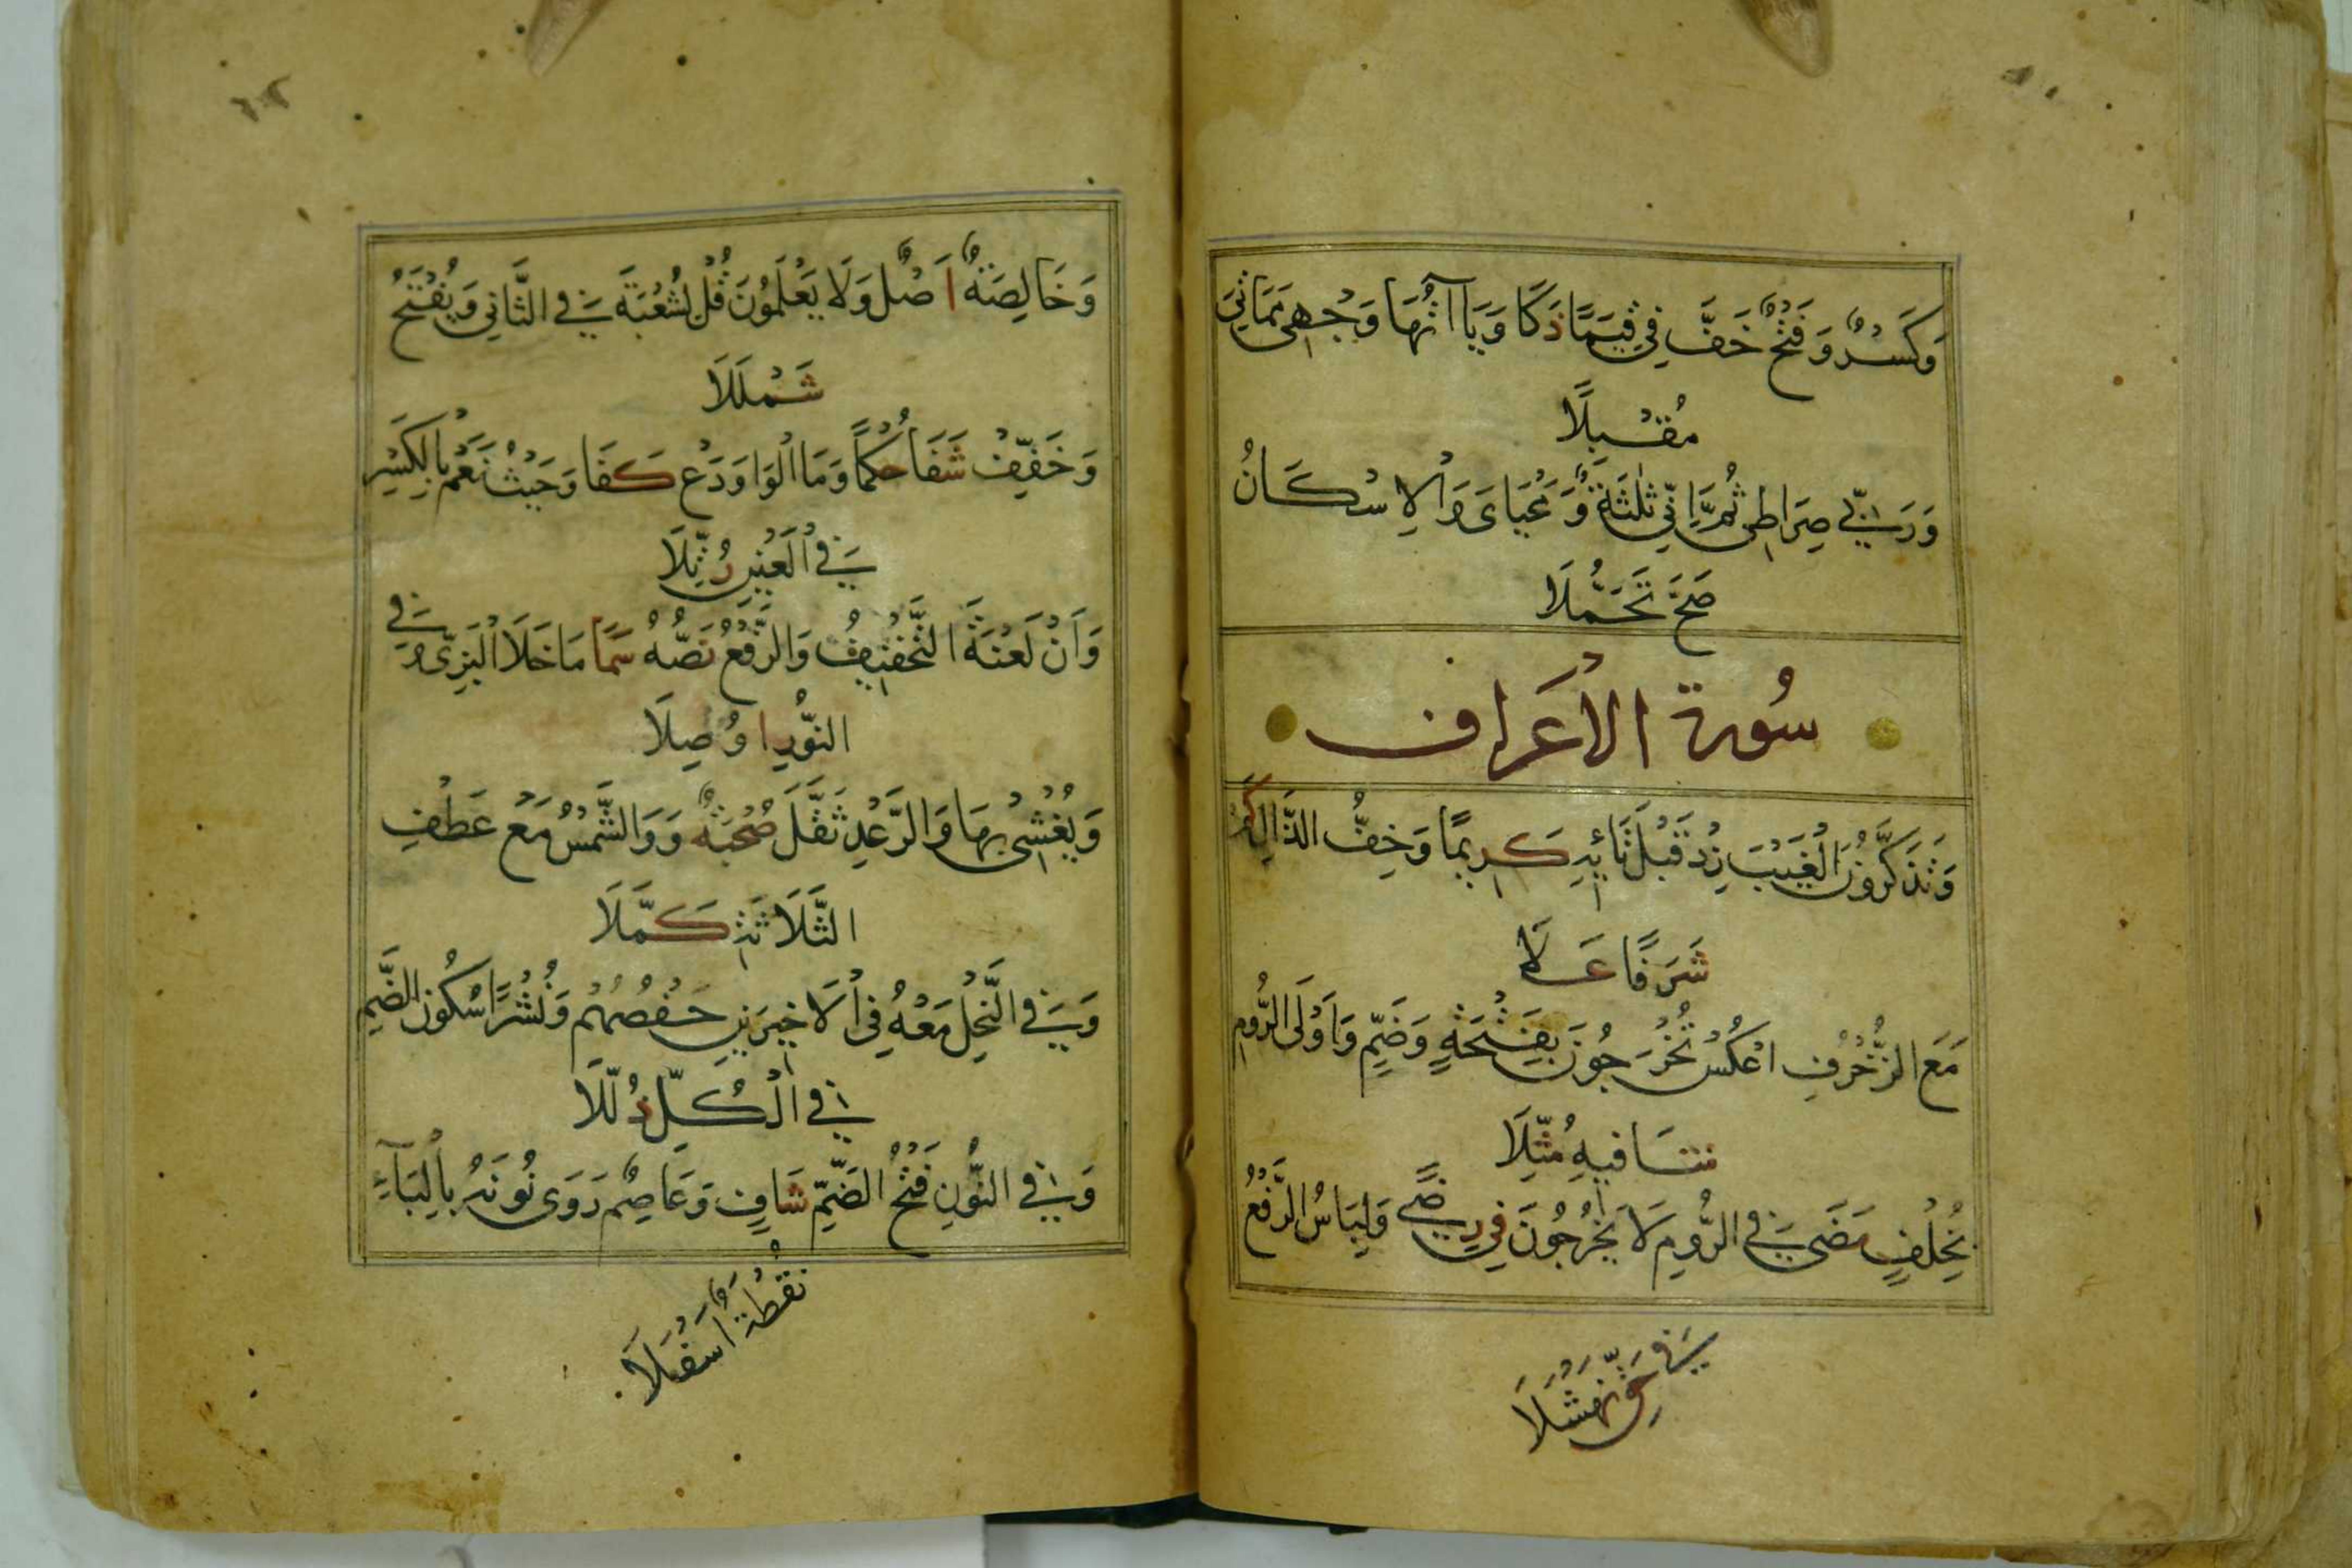 وَكَسْرٌ وَفَتْحٌ خَفَّ فِي قِيَمًا ذَكَا وَيَاآتُهَا وَجْهِيَ مَمَاتِيَ
مُقْبِلًا
وَرَبِّي صِرَاطِي ثُمَّ إِنِّي ثَلٰثَةٌ وَمَحْيَايَ وَالْاِسْكَانُ
صَحَّ تَحَمُّلَا
سُورة الأعراف
وَتَذَكَّرُونَ الْغَيْبَ زِدْ قَبْلَ تَائِهِ كَرِيمًا وَخِفُّ الذَّالِ كَمْ
شَرَفًا عَلَا
مَعَ الزُّخْرُفِ اعْكِسْ تُخْرَجُونَ بِفَتْحَةٍ وَضَمٍّ وَاَوْلَى الرُّومِ
شَافِيهِ مُثِّلَا
بِخُلْفٍ مَضَى فِي الرُّومِ لَا يَخْرُجُونَ فِي رِضًى وَلِبَاسُ الرَّفْعُ
فِي حَقِّ نَهْشَلَا
وَخَالِصَةٌ اَصْلٌ وَلَا يَعْلَمُونَ قُلْ لِشُعْبَةَ فِي الثَّانِي وَيُفْتَحُ
شَمْلَلَا
وَخَفِّفْ شَفَا حُكْمًا وَمَا الْوَاوَ دَعْ كَفَا وَحَيْثُ نَعَمْ بِالْكَسْرِ
فِي الْعَيْنِ رُتِّلَا
وَاَنْ لَعْنَةَ التَّخْفِيفُ وَالرَّفْعُ نَصُّهُ سَمَا مَا خَلَا الْبَزِّي وَفِي
النُّورِ اُوصِلَا
وَيُغْشِي بِهَا وَالرَّعْدِ ثَقَّلَ صُحْبَةٌ وَوَالشَّمْسُ مَعْ عَطْفِ
الثَّلَاثَةِ كَمَّلَا
وَفِي النَّحْلِ مَعْهُ فِي الْاَخِيرَيْنِ حَفْصُهُمْ وَنُشْرًا سُكُونُ الضَّمِّ
فِي الْكُلِّ ذُلِّلَا
وَفِي النُّونِ فَتْحُ الضَّمِّ شَافٍ وَعَاصِمٌ رَوَى نُونَهُ بِالْبَاءِ
نُقْطَةٌ اَسْفَلَا